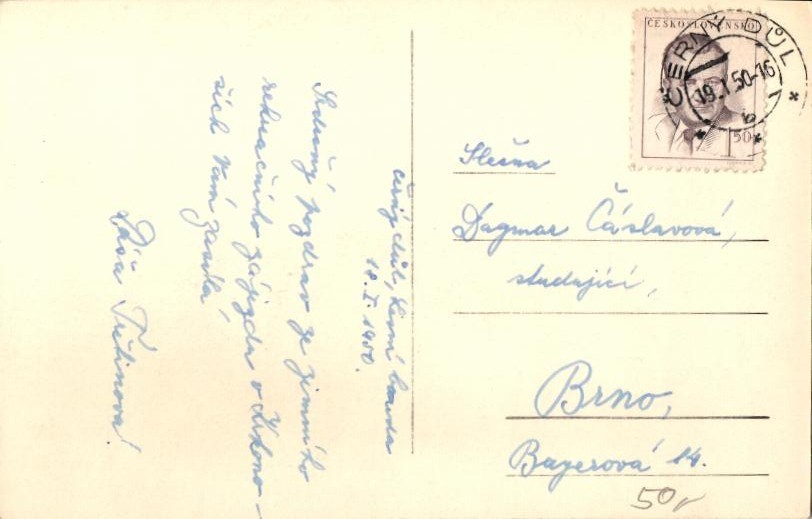 Černý Důl, Lesní bouda
18.I.1950.
Srdečný pozdrav ze zimního
rekreačního zájezdu v Krkono-
ších Vám zasílá,
Dáša
ČESKOSLOVENSKO
1 50
ČERNÝ DŮL 1
19.I 50-16
b
Slečna
Dagmar Čáslavová,
studující,
Brno,
Bayerová 14.
50